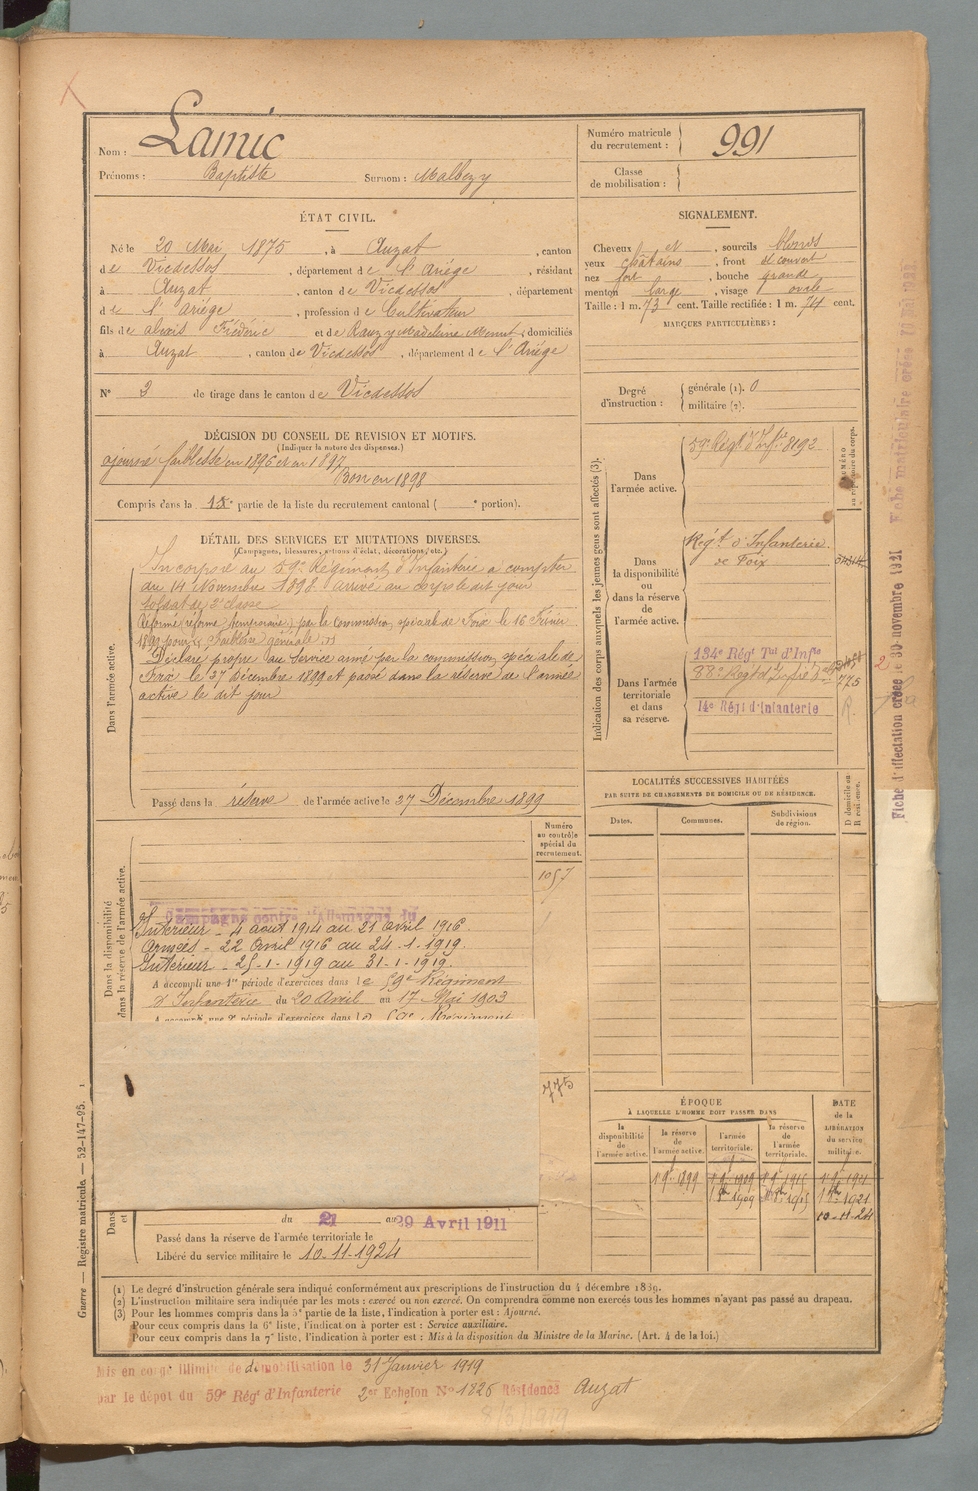 Nom : Lamic
Prénoms : Baptiste Surnom : Malbezy
Numéro matricule du recrutement : 991
Classe de mobilisation :
ÉTAT CIVIL.
Né le 20 Mai 1875, à Auzat, canton
de Vicdessos, département de l'Ariége, résidant
à Auzat, canton de Vicdessos, département
de l'Ariége, profession de Cultivateur
fils de Frédéric et de Rauzy Madeleine, domiciliés
à Auzat, canton de Vicdessos, département de l'Ariége
N° 3 de tirage dans le canton de Vicdessos
SIGNALEMENT.
Cheveux et, sourcils blonds
yeux châtains, front découvert
nez fort, bouche grande
menton large, visage ovale
Taille : 1 m. 73 cent. Taille rectifiée : 1 m. 74 cent.
MARQUES PARTICULIÈRES :
Degré d'instruction : générale (1). 0
militaire (2).
DÉCISION DU CONSEIL DE REVISION ET MOTIFS.
(Indiquer la nature des dispenses.)
ajourné faiblesse en 1896 et en 1897
Bon en 1898
Compris dans la partie de la liste du recrutement cantonal ( portion).
DÉTAIL DES SERVICES ET MUTATIONS DIVERSES.
(Campagnes, blessures, actions d'éclat, décorations, etc.)
Dans l'armée active.
Incorporé au 59e Régiment d'Infanterie à compter
du 14 Novembre 1898. arrivé au corps le dit jour
soldat de 2e classe
Réformé temporaire par la commission spéciale de Foix le 16 Février
1899 pour "Faiblesse générale"
Déclaré propre au service armé par la commission spéciale de
Foix le 27 Décembre 1899 et passé dans la réserve de l'armée
active le dit jour
Passé dans la réserve de l'armée active le 27 Décembre 1899
Indication des corps auxquels les jeunes gens sont affectés (3).
NUMÉRO au répertoire du corps.
Dans l'armée active.
59e Régt d'Infie 8192
Dans la disponibilité ou dans la réserve de l'armée active.
Régt d'Infanterie
de Foix
Dans l'armée territoriale et dans sa réserve.
134e Régt Tal d'Infie
775
14e Régt d'Infanterie
R.
LOCALITÉS SUCCESSIVES HABITÉES
PAR SUITE DE CHANGEMENTS DE DOMICILE OU DE RÉSIDENCE.
Dates. Communes. Subdivisions de région. D domicile ou R résidence.
Dans la disponibilité
dans la réserve de l'armée active.
Numéro au contrôle spécial du recrutement.
1057
Campagne contre l'Allemagne du
Intérieur - 4 août 1914 au 21 Avril 1916.
Armées - 22 Avril 1916 au 24-1-1919.
Intérieur - 25-1-1919 au 31-1-1919.
A accompli une 1re période d'exercices dans le 59e Régiment
d'Infanterie du 20 Avril au 17 Mai 1903
A accompli une 2e période d'exercices dans le 59e Régiment
775
ÉPOQUE
À LAQUELLE L'HOMME DOIT PASSER DANS
la disponibilité de l'armée active.
la réserve de l'armée active.
l'armée territoriale.
la réserve de l'armée territoriale.
DATE de la LIBÉRATION du service militaire.
1899 1909 1915
1909 1915 1921
10-11-24
du 21 au 29 Avril 1911
Passé dans la réserve de l'armée territoriale le
Libéré du service militaire le 10-11-1924
(1) Le degré d'instruction générale sera indiqué conformément aux prescriptions de l'instruction du 4 décembre 1889.
(2) L'instruction militaire sera indiquée par les mots : exercé ou non exercé. On comprendra comme non exercés tous les hommes n'ayant pas passé au drapeau.
(3) Pour les hommes compris dans la 5e partie de la liste, l'indication à porter est : Ajourné.
Pour ceux compris dans la 6e liste, l'indication à porter est : Service auxiliaire.
Pour ceux compris dans la 7e liste, l'indication à porter est : Mis à la disposition du Ministre de la Marine. (Art. 4 de la loi.)
Mis en congé illimité de démobilisation le 31 Janvier 1919
par le dépôt du 59e Régt d'Infanterie 2er Echelon N° 1826 Résidence Auzat
8/8/1919
Guerre — Registre matricule. — 52-147-95.
Fiche d'affectation créée le 30 novembre 1921
Fiche matriculaire créée